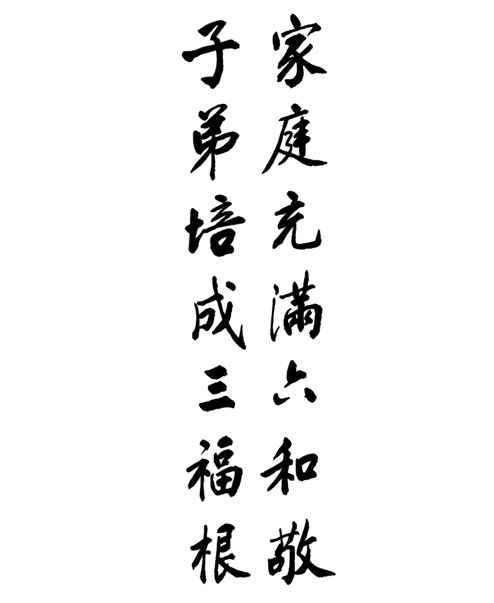 家庭充滿六和敬
子弟培成三福根